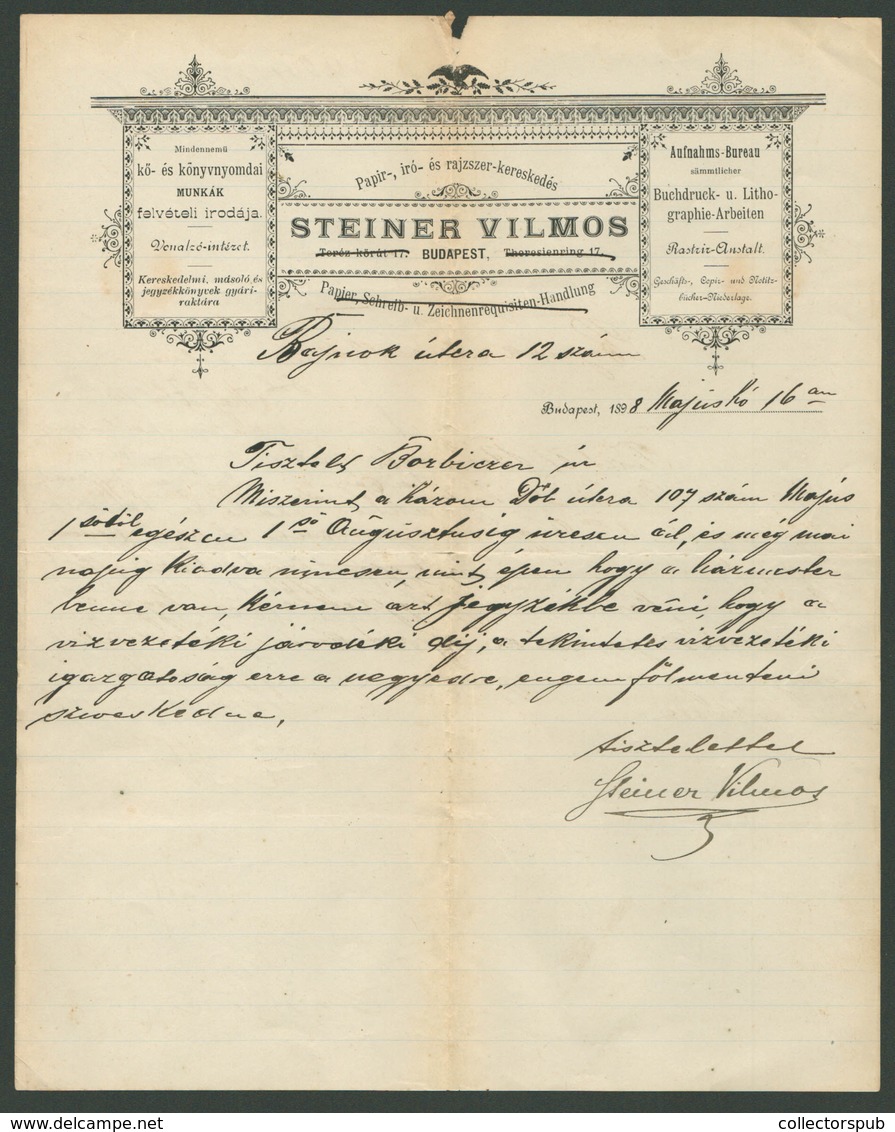 Mindennemű
kő- és könyvnyomdai
MUNKÁK
felvételi irodája.
Vonalzó-intézet.
Kereskedelmi, másoló és
jegyzékkönyvek gyári-
raktára
Papir-, iró- és rajzszer-kereskedés
STEINER VILMOS
Teréz-körút 17. BUDAPEST, Theresienring 17.
Papier, Schreib- u. Zeichnenrequisiten-Handlung
Aufnahms-Bureau
sämmtlicher
Buchdruck- u. Litho-
graphie-Arbeiten
Rastrir-Anstalt.
Geschäfts-, Copir- und Notitz-
bücher-Niederlage.
Bajnok útcza 12 szám
Budapest, 1898 Májús hó 16 án
Tisztelt Borbiczer úr
Miszerint a házom Dob útcza 107 szám Május
1 sőtöl egészen 1 ső Augusztusig üressen áll, és még mai
napig kiadva nincsen, mint épen hogy a házmester
benne van, Kérnem azt jegyzékbe véni, hogy a
vizvezetéki járodéki dij, a tekintetes vizvezetéki
igazgatoság erre a negyedre, engem fölmenteni
sziveskedne,
tisztelettel
Steiner Vilmos
collectorspub